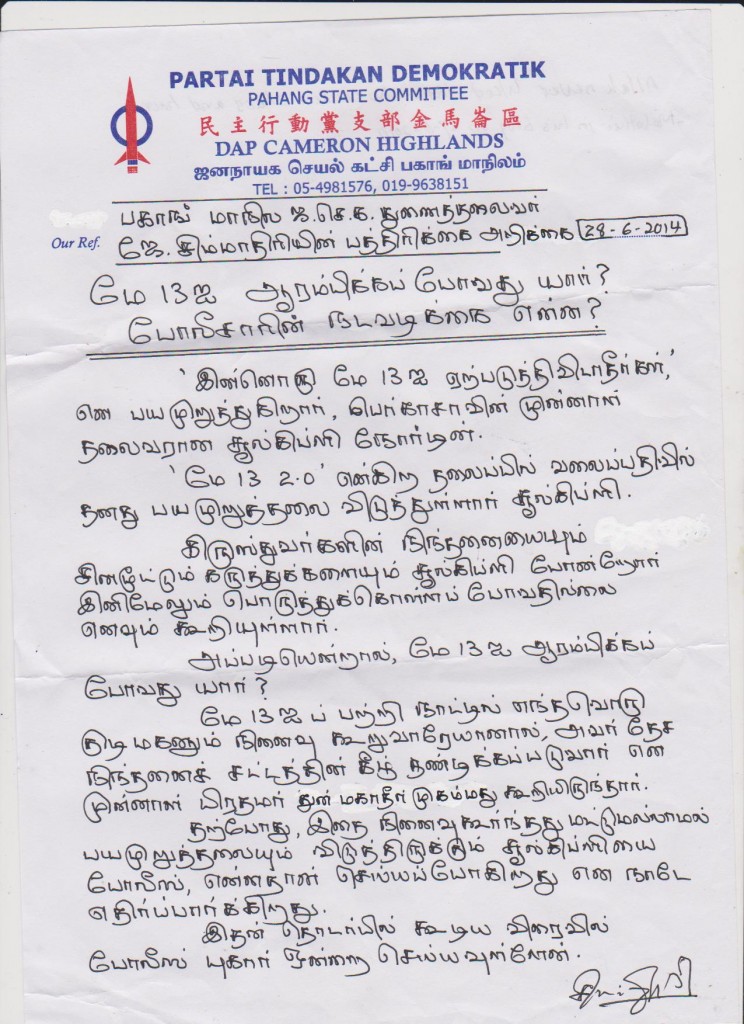 PARTAI TINDAKAN DEMOKRATIK
PAHANG STATE COMMITTEE
民主行動黨支部金馬崙區
DAP CAMERON HIGHLANDS
ஜனநாயக செயல் கட்சி பகாங் மாநிலம்
TEL : 05-4981576, 019-9638151
பகாங் மாநில ஜ.செ.க. துணைத்தலைவர்
Our Ref. ஜே. சிம்மாதிரியின் பத்திரிக்கை அறிக்கை 28-6-2014
மே 13ஐ ஆரம்பிக்கப் போவது யார்?
போலீசாரின் நடவடிக்கை என்ன?
'இன்னொரு மே 13ஐ ஏற்படுத்திவிடாதீர்கள்,'
என பயமுறுத்துகிறார், பெர்காசாவின் முன்னாள்
தலைவரான சூல்கிப்ளி நோர்டின்.
'மே 13 2.0' என்கிற தலைப்பில் வலைப்பதிவில்
தனது பயமுறுத்தலை விடுத்துள்ளார் சூல்கிப்ளி.
கிருஸ்துவர்களின் நிந்தனையையும்
சினமூட்டும் கருத்துக்களையும் சூல்கிப்ளி போன்றோர்
இனிமேலும் பொருத்துக்கொள்ளப் போவதில்லை
எனவும் கூறியுள்ளார்.
அப்படியென்றால், மே 13ஐ ஆரம்பிக்கப்
போவது யார்?
மே 13ஐப் பற்றி நாட்டில் எந்தவொரு
குடிமகனும் நினைவு கூறுவாரேயானால், அவர் தேச
நிந்தனைச் சட்டத்தின் கீழ் தண்டிக்கப்படுவார் என
முன்னாள் பிரதமர் துன் மகாதீர் முகம்மது கூறியிருந்தார்.
தற்போது, இதை நினைவுகூர்ந்தது மட்டுமல்லாமல்
பயமுறுத்தலையும் விடுத்திருக்கும் சூல்கிப்ளியை
போலீஸ், என்னதான் செய்யப்போகிறது என நாடே
எதிர்ப்பார்க்கிறது.
இதன் தொடர்பில் கூடிய விரைவில்
போலீஸ் புகார் ஒன்றை செய்யவுள்ளேன்.